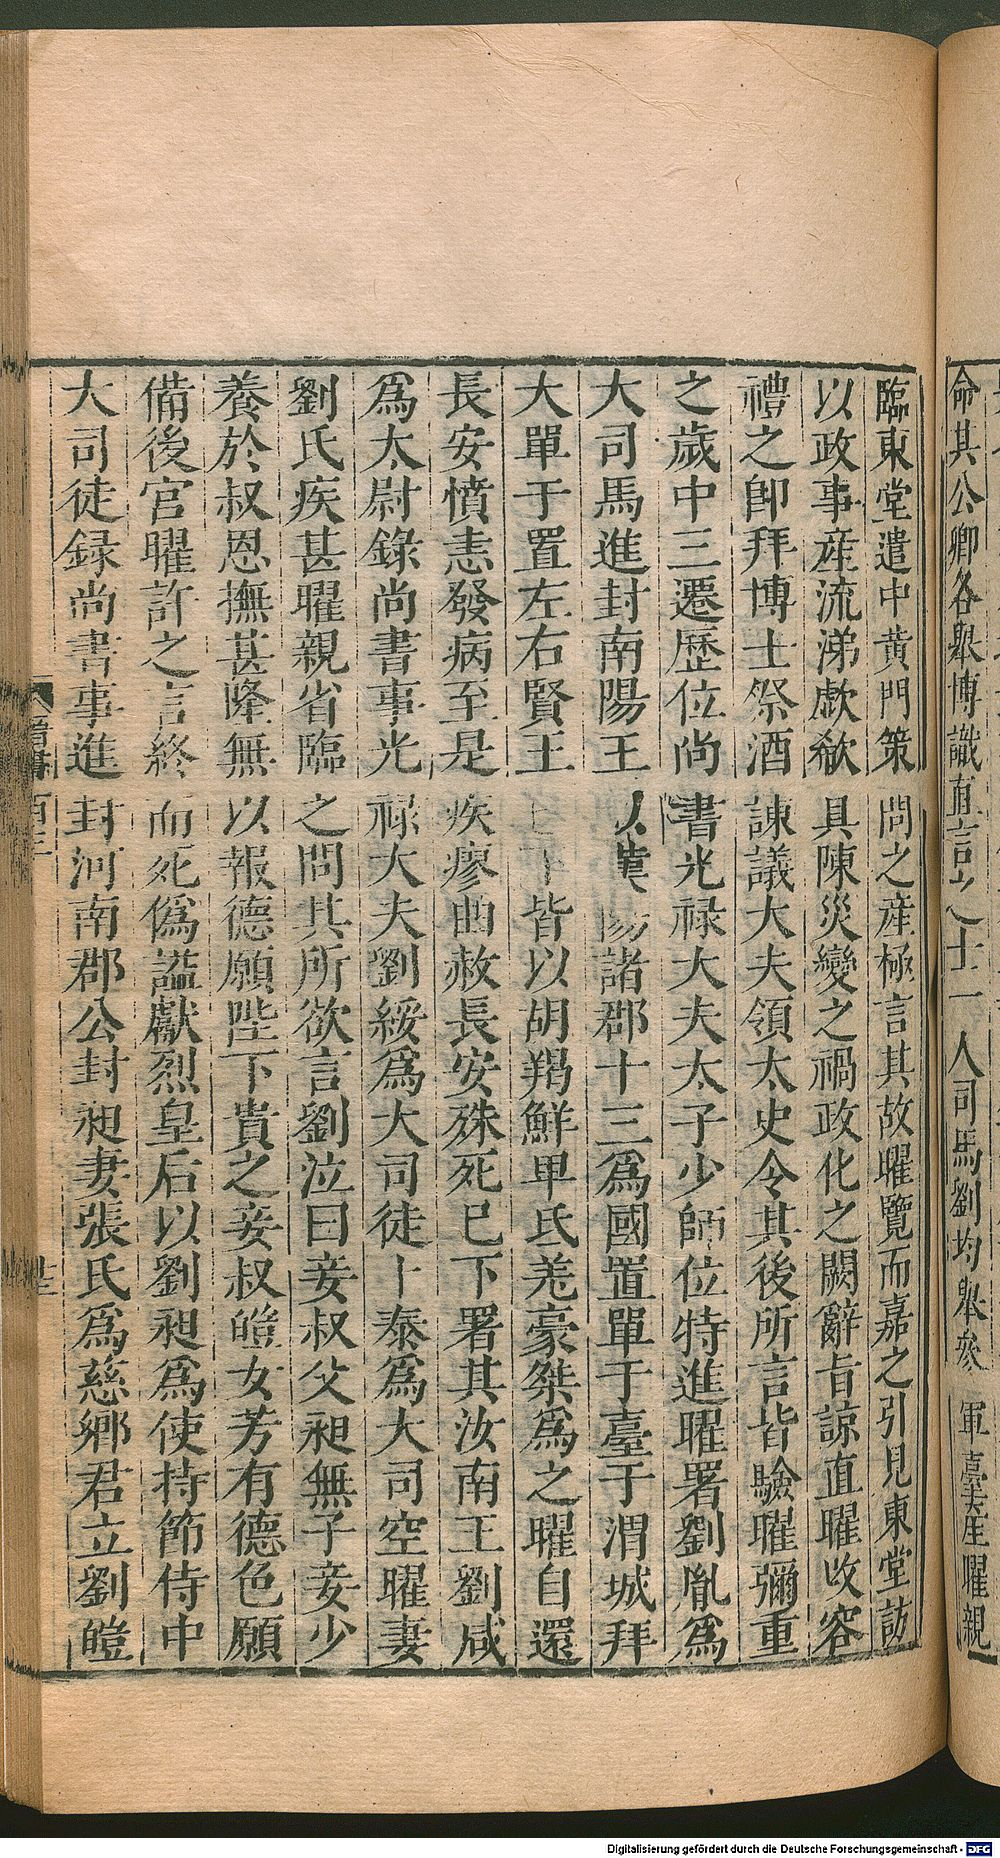 命其公卿各舉博識直言之士一人司馬劉均舉參軍臺產曜親
臨東堂遣中黃門策問之產極言其故曜覽而嘉之引見東堂訪
以政事產流涕歔欷具陳災變之禍政化之闕辭旨諒直曜改容
禮之卽拜博士祭酒諫議大夫領太史令其後所言皆驗曜彌重
之歲中三遷歷位尚書光祿大夫太子少師位特進曜署劉胤爲
大司馬進封南陽王以漢陽諸郡十三爲國置單于臺于渭城拜
大單于置左右賢王已下皆以胡羯鮮卑氐羌豪桀爲之曜自還
長安憤恚發病至是疾瘳曲赦長安殊死已下署其汝南王劉咸
爲太尉錄尚書事光祿大夫劉綏爲大司徒卜泰爲大司空曜妻
劉氏疾甚曜親省臨之問其所欲言劉泣曰妾叔父昶無子妾少
養於叔恩撫甚隆無以報德願陛下貴之妾叔皚女芳有德色願
備後宮曜許之言終而死僞謚獻烈皇后以劉昶爲使持節侍中
大司徒録尚書事進封河南郡公封昶妻張氏爲慈鄉君立劉皚
晉書 百三
Digitalisierung gefördert durch die Deutsche Forschungsgemeinschaft - DFG